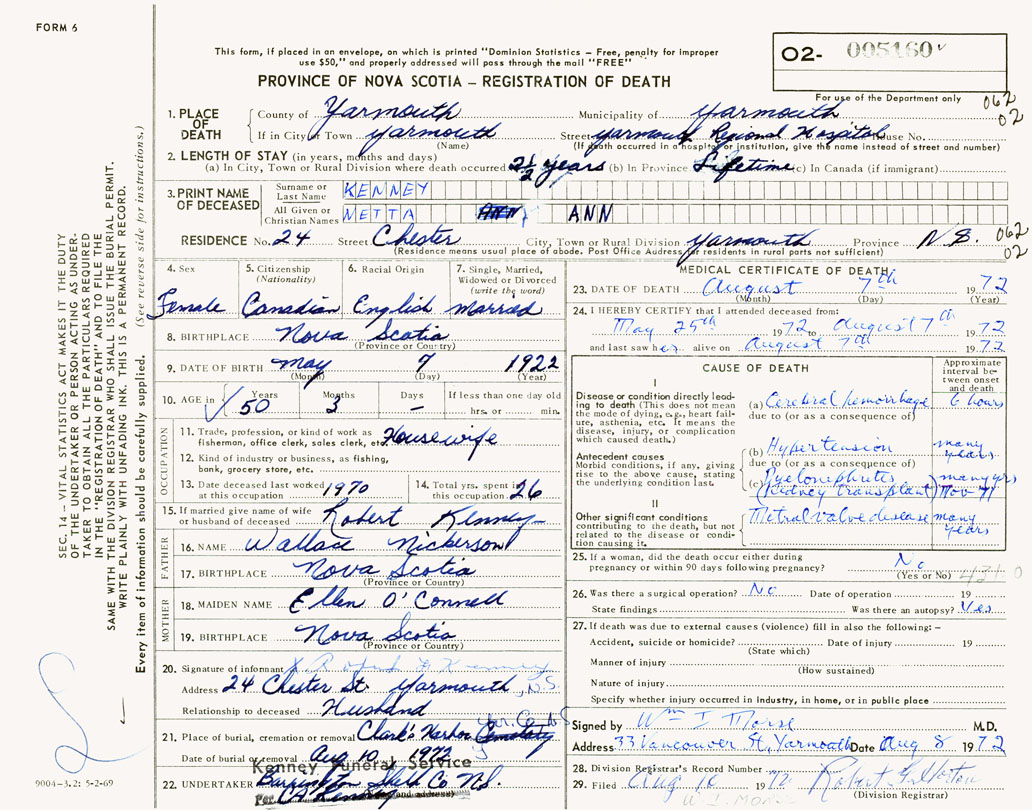 FORM 6
This form, if placed in an envelope, on which is printed "Dominion Statistics – Free, penalty for improper
use $50," and properly addressed will pass through the mail "FREE"
O2- 005160
PROVINCE OF NOVA SCOTIA – REGISTRATION OF DEATH
For use of the Department only
062
02
1. PLACE OF DEATH
County of Yarmouth Municipality of Yarmouth
If in City or Town Yarmouth Street Yarmouth Regional Hospital House No.
(Name) (If death occurred in a hospital or institution, give the name instead of street and number)
2. LENGTH OF STAY (in years, months and days)
(a) In City, Town or Rural Division where death occurred 2½ years (b) In Province Lifetime (c) In Canada (if immigrant)
3. PRINT NAME OF DECEASED
Surname or Last Name KENNEY
All Given or Christian Names NETTA ANN
RESIDENCE No. 24 Street Chester City, Town or Rural Division Yarmouth Province N.S. 062
02
(Residence means usual place of abode. Post Office Address for residents in rural parts not sufficient)
4. Sex 5. Citizenship (Nationality) 6. Racial Origin 7. Single, Married, Widowed or Divorced (write the word)
Female Canadian English married
8. BIRTHPLACE Nova Scotia
(Province or Country)
9. DATE OF BIRTH May 7 1922
(Month) (Day) (Year)
10. AGE in Years Months Days If less than one day old
50 3 – hrs. or min.
OCCUPATION
11. Trade, profession, or kind of work as
fisherman, office clerk, sales clerk, etc. Housewife
12. Kind of industry or business, as fishing,
bank, grocery store, etc.
13. Date deceased last worked at this occupation 1970 14. Total yrs. spent in 26
15. If married give name of wife
or husband of deceased Robert Kenney
FATHER
16. NAME Wallace Nickerson
17. BIRTHPLACE Nova Scotia
(Province or Country)
MOTHER
18. MAIDEN NAME Ellen O'Connell
19. BIRTHPLACE Nova Scotia
(Province or Country)
20. Signature of informant
Address 24 Chester St. Yarmouth, N.S.
Relationship to deceased Husband
21. Place of burial, cremation or removal Clark's Harbor Cemetery
Date of burial or removal Aug 10, 1972
Kenney Funeral Service
22. UNDERTAKER Barrington Shelb Co N.S.
Per
MEDICAL CERTIFICATE OF DEATH
23. DATE OF DEATH August 7th 1972
(Month) (Day) (Year)
24. I HEREBY CERTIFY that I attended deceased from:
May 25th 1972 to August 7th 1972
and last saw her alive on August 7th 1972
CAUSE OF DEATH
Approximate interval between onset and death
I
Disease or condition directly leading to death (This does not mean the mode of dying, e.g., heart failure, asthenia, etc. It means the disease, injury, or complication which caused death.)
(a) Cerebral hemorrhage 6 hours
due to (or as a consequence of)
Antecedent causes
Morbid conditions, if any, giving rise to the above cause, stating the underlying condition last.
(b) Hypertension many years
due to (or as a consequence of)
(c) Pyelonephritis many yrs
(kidney transplant) Nov 71
II
Other significant conditions
contributing to the death, but not related to the disease or condition causing it.
Metral valve disease many years
25. If a woman, did the death occur either during
pregnancy or within 90 days following pregnancy? No
(Yes or No)
26. Was there a surgical operation? No Date of operation 19
State findings Was there an autopsy? Yes
27. If death was due to external causes (violence) fill in also the following: –
Accident, suicide or homicide? Date of injury 19
(State which)
Manner of injury
(How sustained)
Nature of injury
Specify whether injury occurred in industry, in home, or in public place
Signed by Wm I Morse M.D.
Address 33 Vancouver St, Yarmouth Date Aug 8 1972
28. Division Registrar's Record Number
29. Filed Aug 10 1972
(Division Registrar)
SEC. 14 – VITAL STATISTICS ACT MAKES IT THE DUTY
OF THE UNDERTAKER OR PERSON ACTING AS UNDERTAKER
TO OBTAIN ALL THE PARTICULARS REQUIRED
IN THE "REGISTRATION OF DEATH" AND TO FILE THE
SAME WITH THE DIVISION REGISTRAR WHO SHALL ISSUE THE BURIAL PERMIT.
WRITE PLAINLY WITH UNFADING INK. THIS IS A PERMANENT RECORD.
Every item of information should be carefully supplied. (See reverse side for instructions.)
9004-3.2: 5-2-69